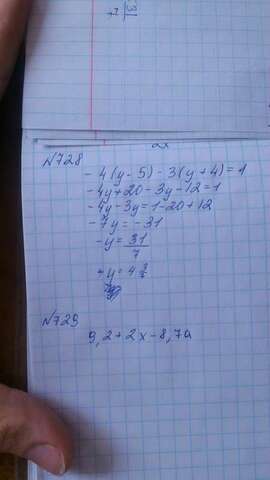 N728
- 4(y - 5) - 3(y + 4) = 1
- 4y + 20 - 3y - 12 = 1
- 4y - 3y = 1 - 20 + 12
- 7y = - 31
- y = 31/7
+ y = 4 3/7
N729
9,2 + 2x - 8,7a